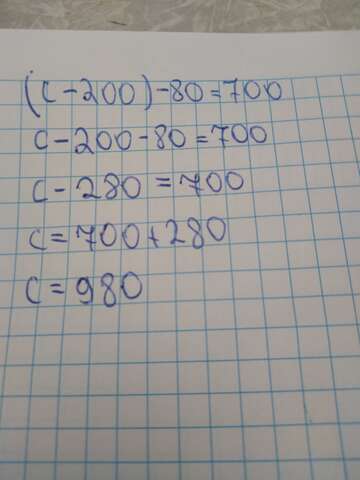 (c-200)-80=700
c-200-80=700
c-280=700
c=700+280
c=980